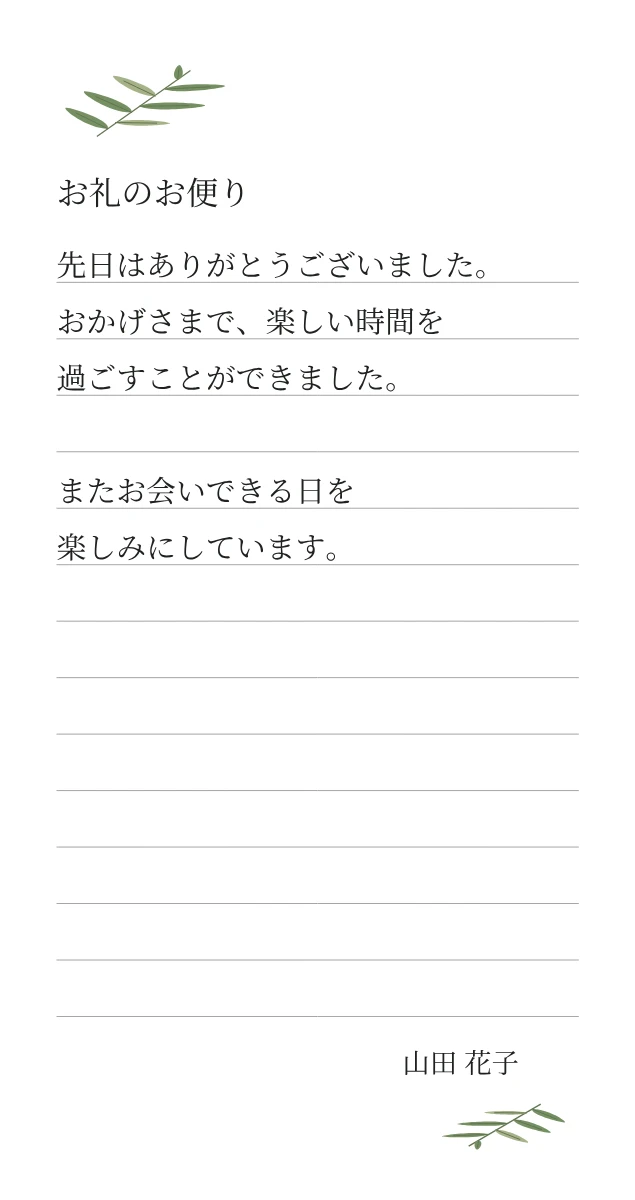 お礼のお便り
先日はありがとうございました。
おかげさまで、楽しい時間を
過ごすことができました。
またお会いできる日を
楽しみにしています。
山田 花子